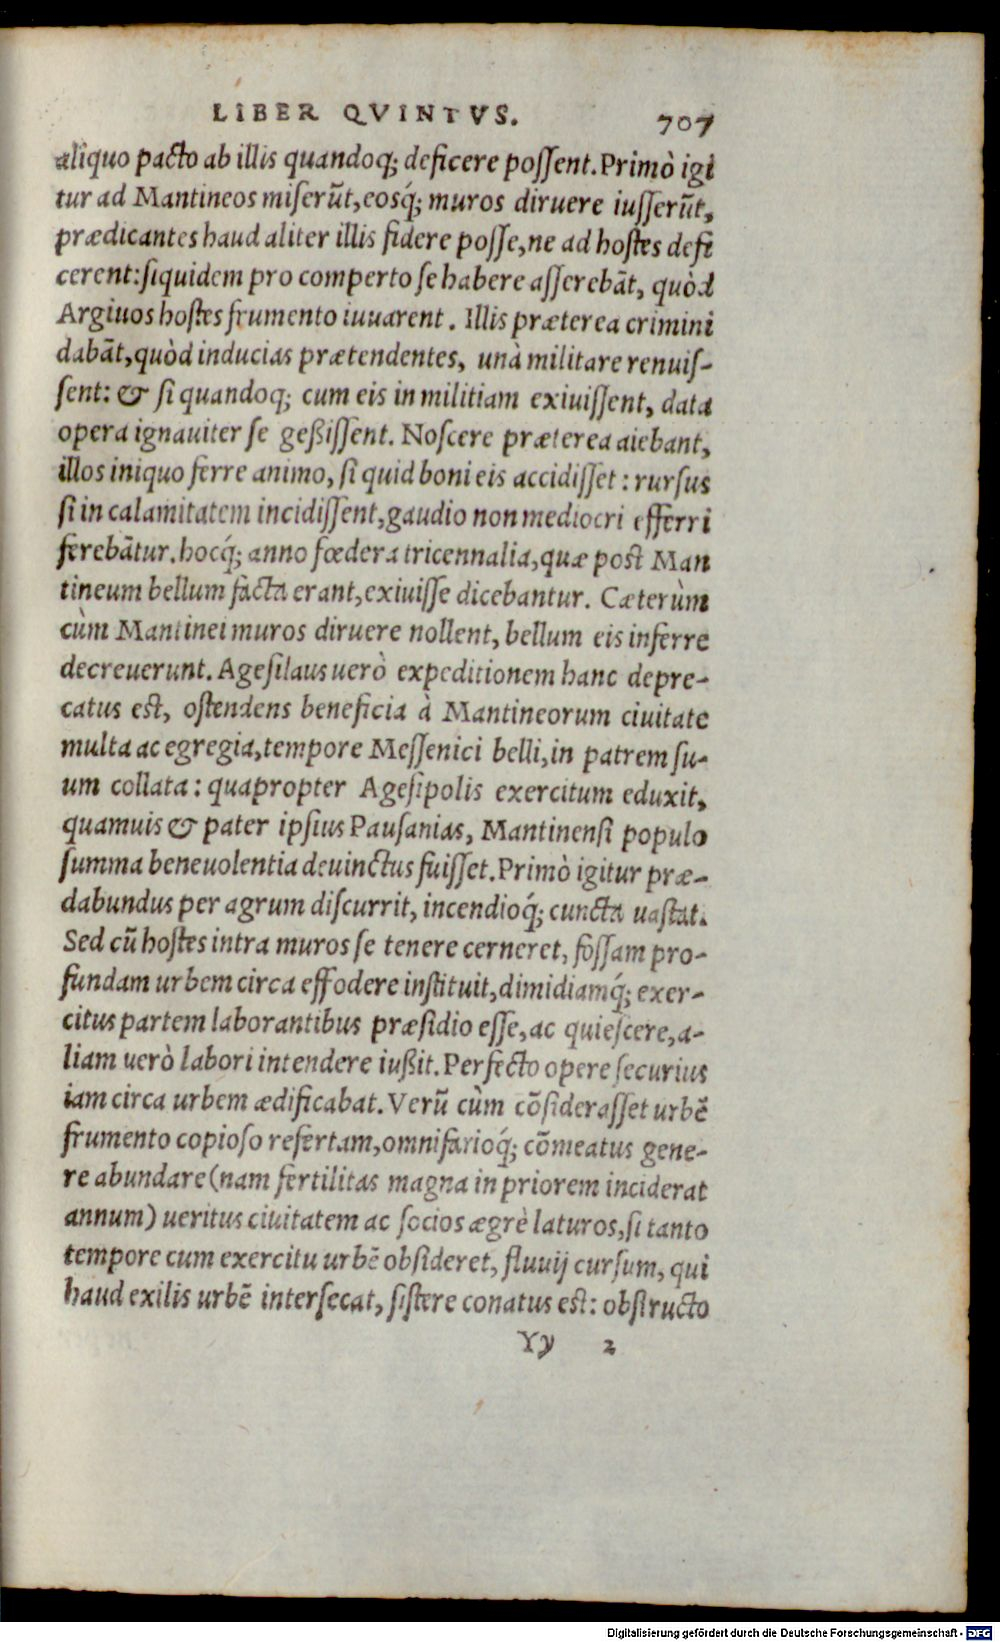 LIBER QVINTVS. 707
aliquo pacto ab illis quandoq́; deficere poſſent. Primò igi
tur ad Mantineos miſerũt, eosq́; muros diruere iuſſerũt,
prædicantes haud aliter illis fidere poſſe, ne ad hoſtes defi
cerent: ſiquidem pro comperto ſe habere aſſerebãt, quòd
Argiuos hoſtes frumento iuuarent. Illis præterea crimini
dabãt, quòd inducias prætendentes, unà militare renuiſ-
ſent: & ſi quandoq; cum eis in militiam exiuiſſent, data
opera ignauiter ſe geßiſſent. Noſcere præterea aiebant,
illos iniquo ferre animo, ſi quid boni eis accidiſſet: rurſus
ſi in calamitatem incidiſſent, gaudio non mediocri efferri
ferebãtur. hocq́; anno fœdera tricennalia, quæ post Man
tineum bellum facta erant, exiuiſſe dicebantur. Cæterùm
cùm Mantinei muros diruere nollent, bellum eis inferre
decreuerunt. Ageſilaus uerò expeditionem hanc depre-
catus est, oſtendens beneficia à Mantineorum ciuitate
multa ac egregia, tempore Meſſenici belli, in patrem ſu-
um collata: quapropter Ageſipolis exercitum eduxit,
quamuis & pater ipſius Pauſanias, Mantinenſi populo
ſumma beneuolentia deuinctus fuiſſet. Primò igitur præ-
dabundus per agrum diſcurrit, incendioq́; cuncta uaſtat.
Sed cũ hoſtes intra muros ſe tenere cerneret, foſſam pro-
fundam urbem circa effodere inſtituit, dimidiamq́; exer-
citus partem laborantibus præſidio eſſe, ac quieſcere, a-
liam uerò labori intendere iußit. Perfecto opere ſecurius
iam circa urbem ædificabat. Verũ cùm cõſideraſſet urbẽ
frumento copioſo refertam, omnifarioq́; cõmeatus gene-
re abundare (nam fertilitas magna in priorem inciderat
annum) ueritus ciuitatem ac ſocios ægrè laturos, ſi tanto
tempore cum exercitu urbẽ obſideret, fluuij curſum, qui
haud exilis urbẽ interſecat, ſiſtere conatus est: obſtructo
Yy 2
Digitalisierung gefördert durch die Deutsche Forschungsgemeinschaft - DFG